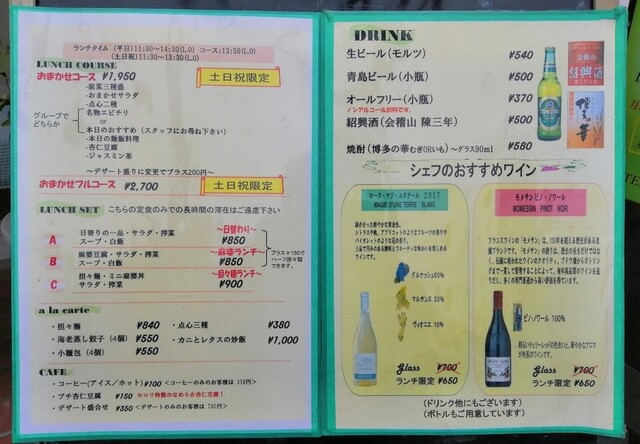 ランチタイム (平日)11:30~14:30(L.O) コース:13:50(L.O)
(土日祝)11:30~13:30(L.O)
LUNCH COURSE
おまかせコース ¥1,950
土日祝限定
・前菜三種盛
・おまかせサラダ
・点心二種
グループで
どちらか
名物エビチリ
or
本日のおすすめ (スタッフにお尋ね下さい)
・本日の麺飯料理
・杏仁豆腐
・ジャスミン茶
~デザート盛りに変更でプラス200円~
おまかせフルコース ¥2,700
土日祝限定
LUNCH SET こちらの定食のみでの長時間の滞在はご遠慮下さい
~日替わり~
A 日替りの一品・サラダ・搾菜
スープ・白飯 ¥850
~麻婆ランチ~
B 麻婆豆腐・サラダ・搾菜
スープ・白飯 ¥850
プラス¥150で
ハーフ担々麺
できます。
~担々麺ランチ~
C 担々麺・ミニ麻婆丼
サラダ・搾菜 ¥900
a la carte
・担々麺 ¥840
・点心三種 ¥380
・海老蒸し餃子(4個) ¥550
・カニとレタスの炒飯 ¥1,000
・小籠包(4個) ¥550
CAFE
・コーヒー(アイス/ホット) ¥100
・プチ杏仁豆腐 ¥150 セロリ特製のなめらか杏仁豆腐!
・デザート盛合せ ¥350
DRINK
生ビール(モルツ) ¥540
青島ビール(小瓶) ¥500
オールフリー(小瓶) ¥370
ノンアルコール飲料です。
紹興酒(会稽山 陳三年) ¥500
焼酎(博多の華むぎORいも)~グラス90ml ¥580
会稽山
紹興酒
博多の華
シェフのおすすめワイン
2017
MAGIE D'UNE TERRE BLANC
グルナッシュ60%
マルサンヌ 30%
ヴィオニエ 10%
glass ¥700
ランチ限定 ¥650
モメサン ピノ・ノワール
MOMESSIN PINOT NOIR
ピノ・ノワール 100%
glass ¥700
ランチ限定 ¥650
(ドリンク他にもございます)
(ボトルもご用意しています)